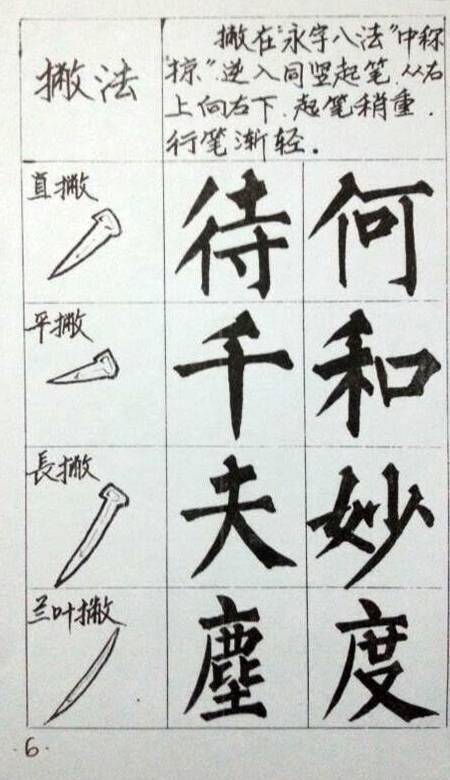 撇法
撇在“永字八法”中称
“掠”.逆入同竖起笔.从右
上向左下.起笔稍重.
行笔渐轻.
直撇
待 何
平撇
千 和
長撇
夫 妙
兰叶撇
塵 度
·6·